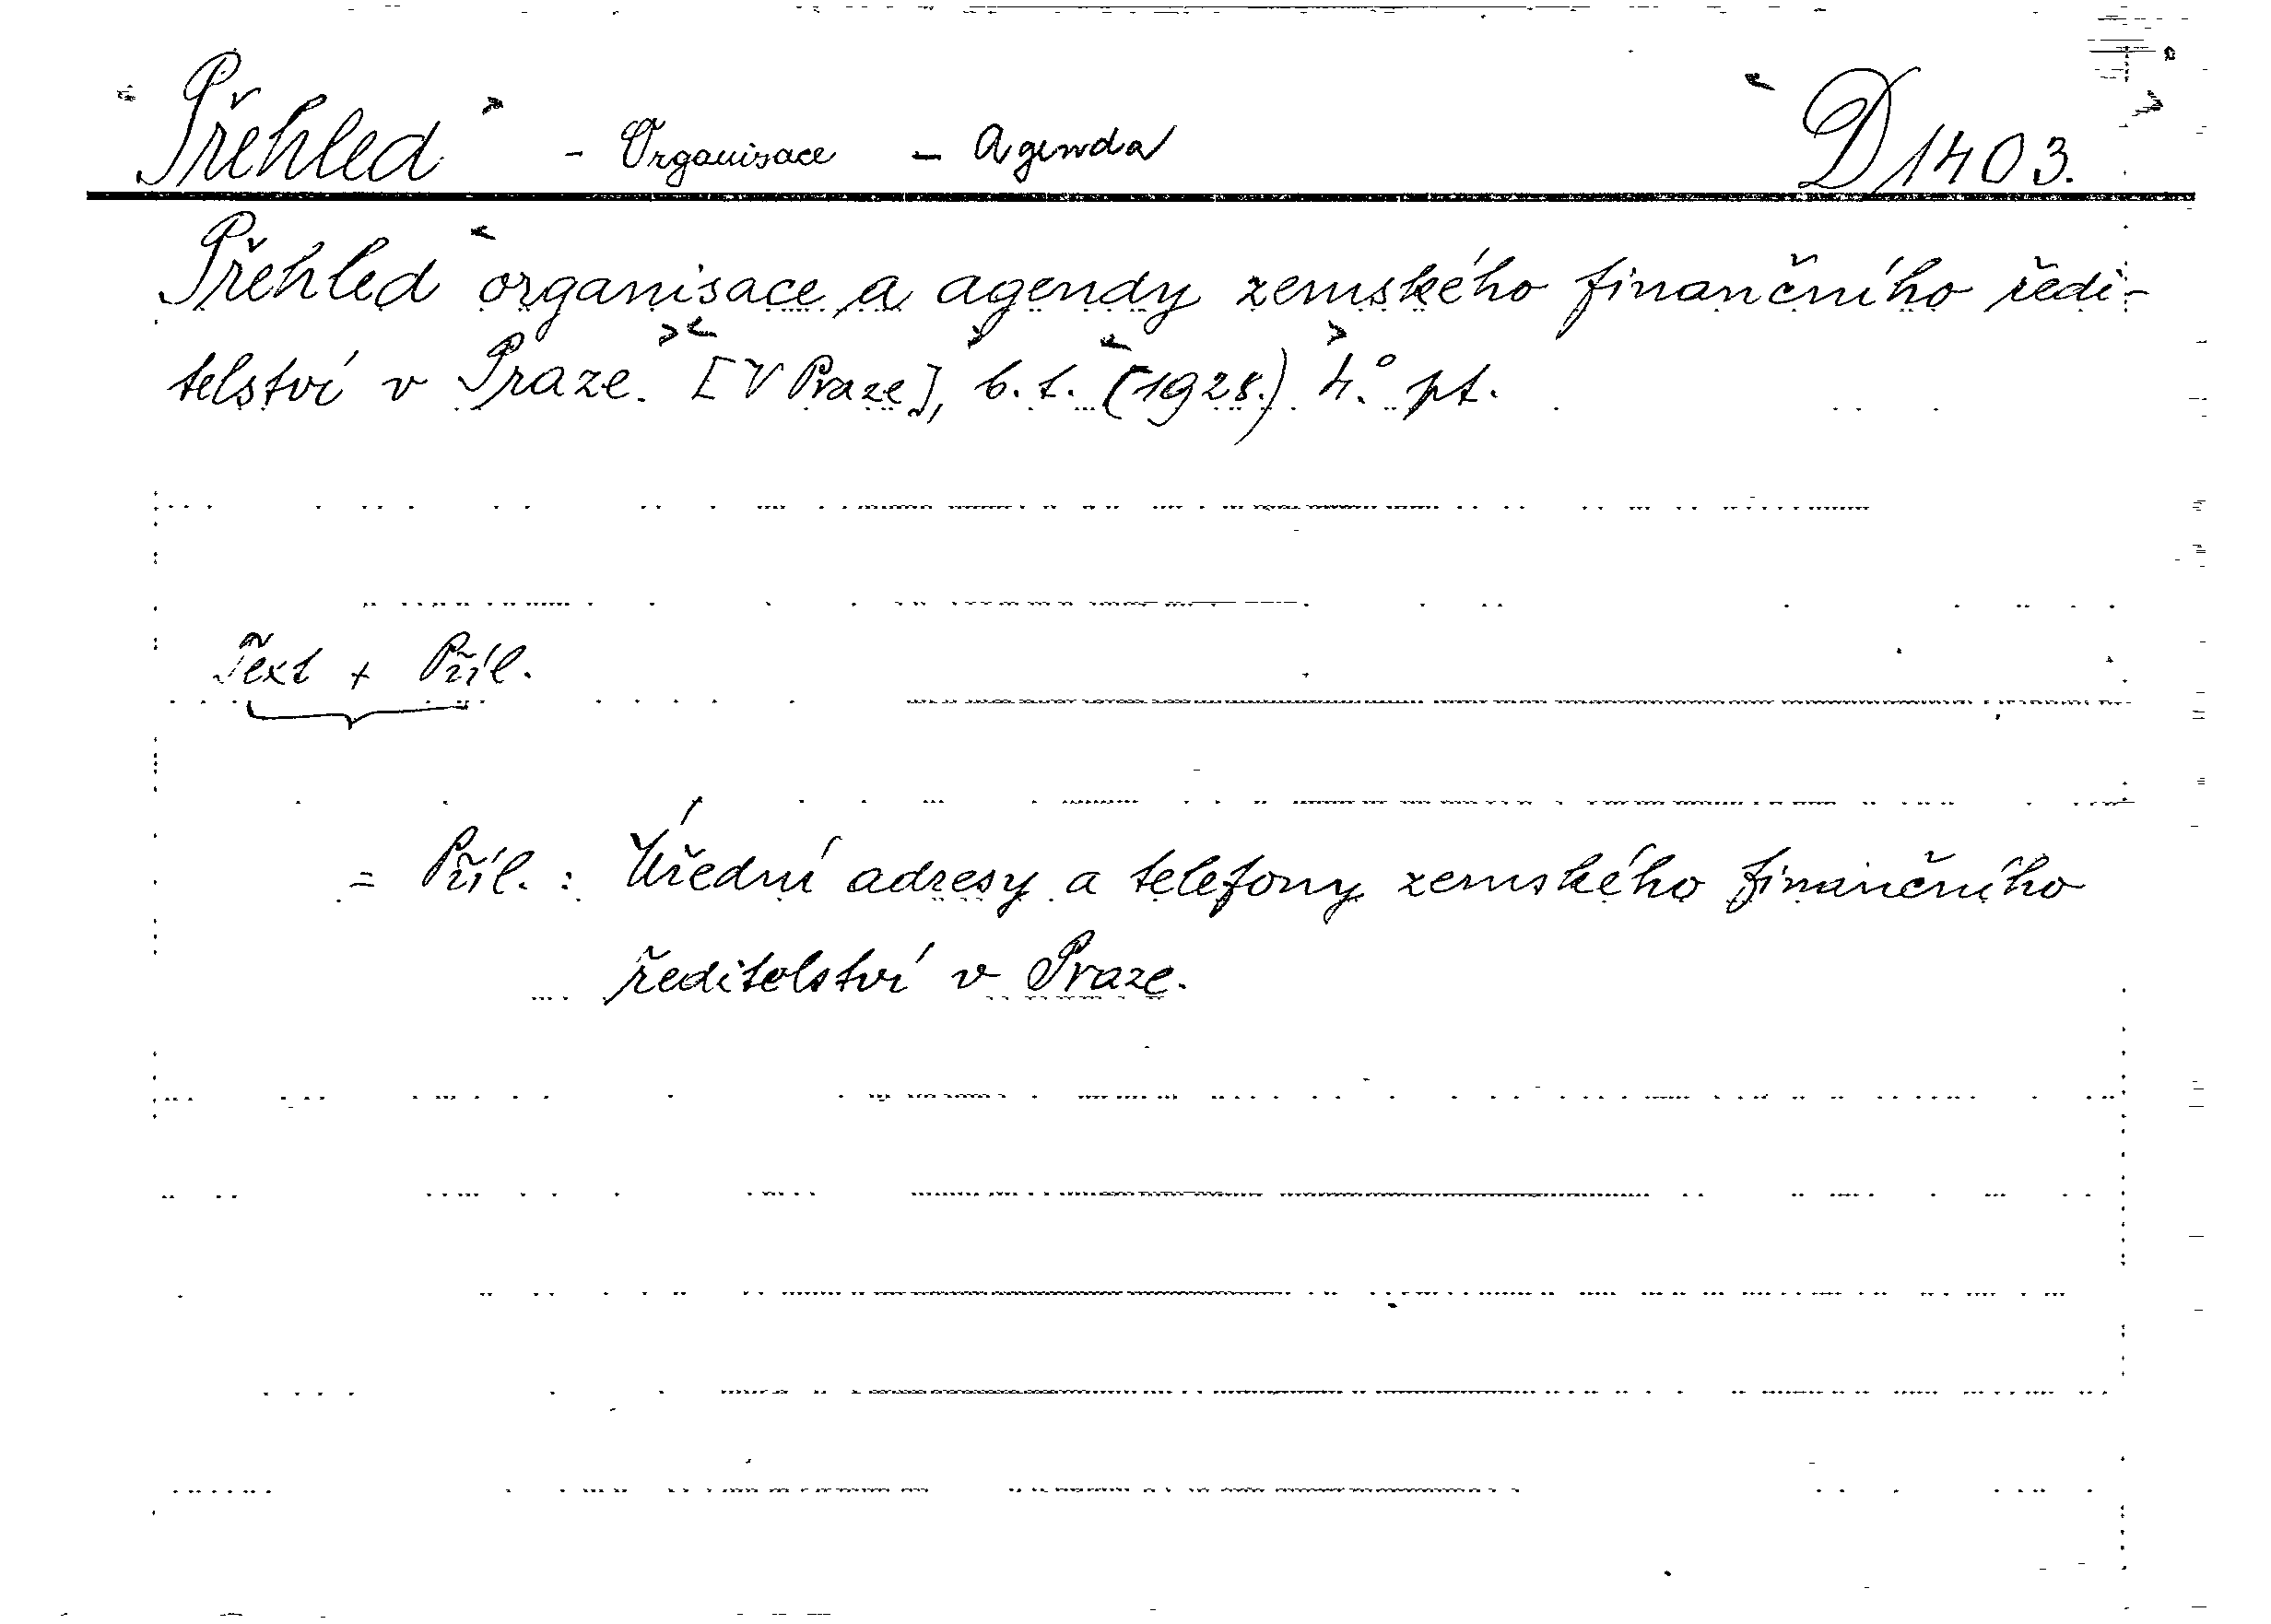 Přehled - Organisace - Agenda D 1403.
Přehled organisace a agendy zemského finančního ředi-
telství v Praze. [V Praze], b. t. (1928.) 4.° pt.
Text + Příl.
= Příl. : Úřední adresy a telefony zemského finančního
ředitelství v Praze.